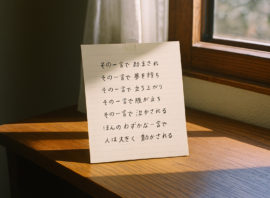 その一言で 励まされ
その一言で 夢を持ち
その一言で 立ち上がり
その一言で 腹が立ち
その一言で 泣かされる
ほんのわずかな一言で
人は大きく 動かされる